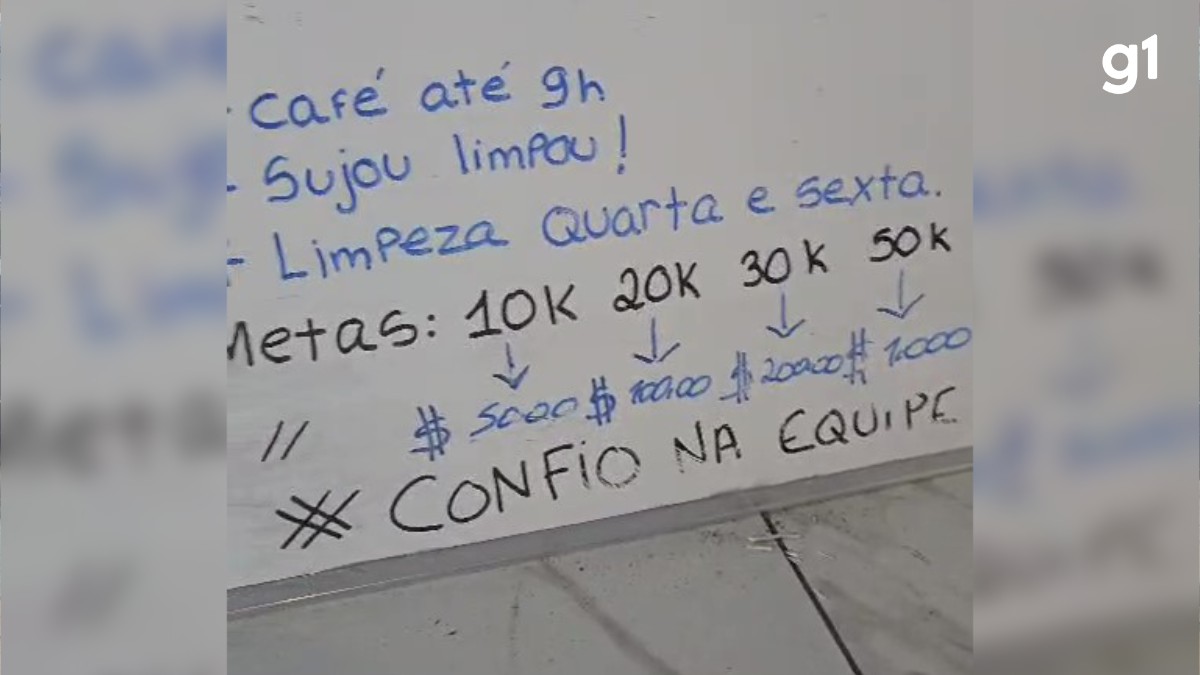 g1
- Café até 9h
- Sujou limpou!
- Limpeza Quarta e sexta.
Metas: 10K 20K 30K 50K
// $ 50,00 $ 100,00 $ 200,00 $ 1.000
CONFIO NA EQUIPE